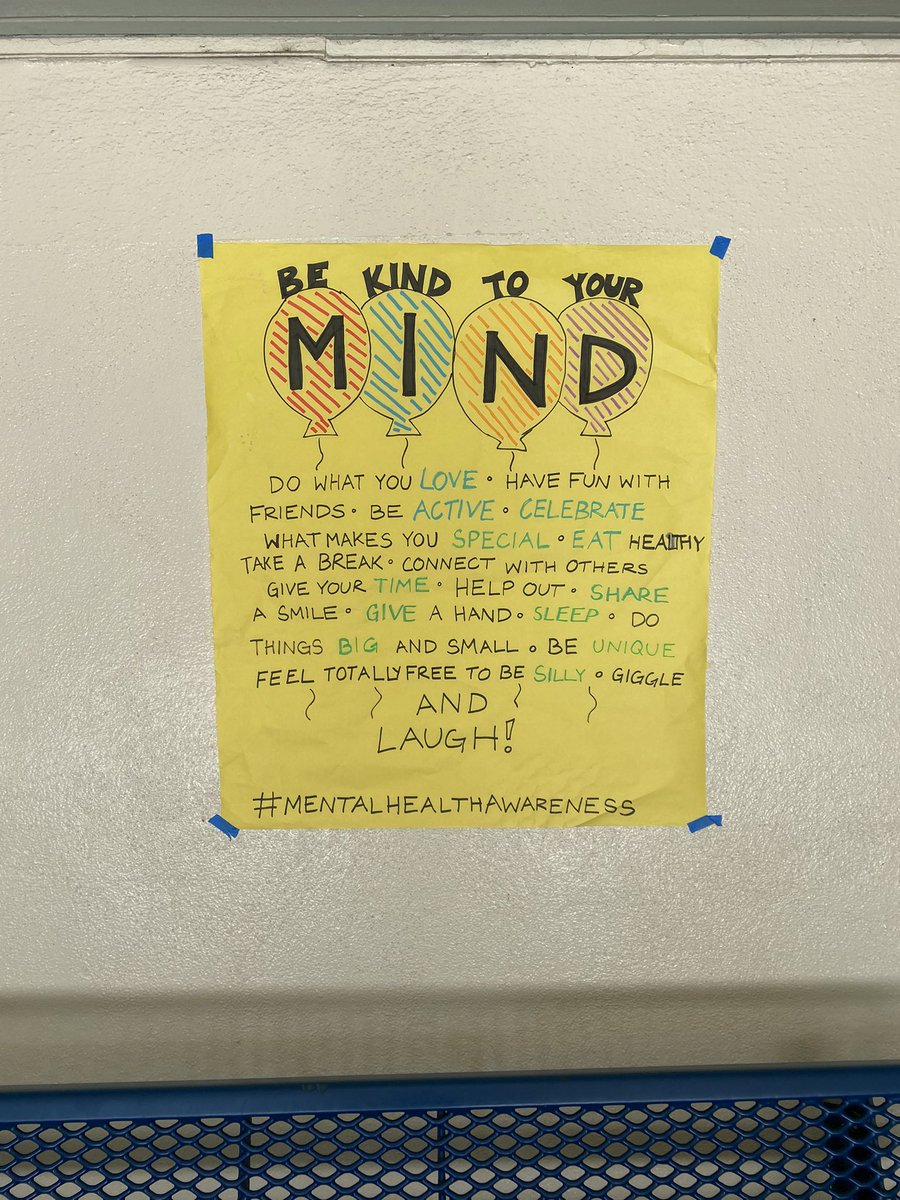 BE KIND TO YOUR
MIND
DO WHAT YOU LOVE • HAVE FUN WITH
FRIENDS • BE ACTIVE • CELEBRATE
WHAT MAKES YOU SPECIAL • EAT HEALTHY
TAKE A BREAK • CONNECT WITH OTHERS
GIVE YOUR TIME • HELP OUT • SHARE
A SMILE • GIVE A HAND • SLEEP • DO
THINGS BIG AND SMALL • BE UNIQUE
FEEL TOTALLY FREE TO BE SILLY • GIGGLE
AND
LAUGH!
#MENTALHEALTHAWARENESS